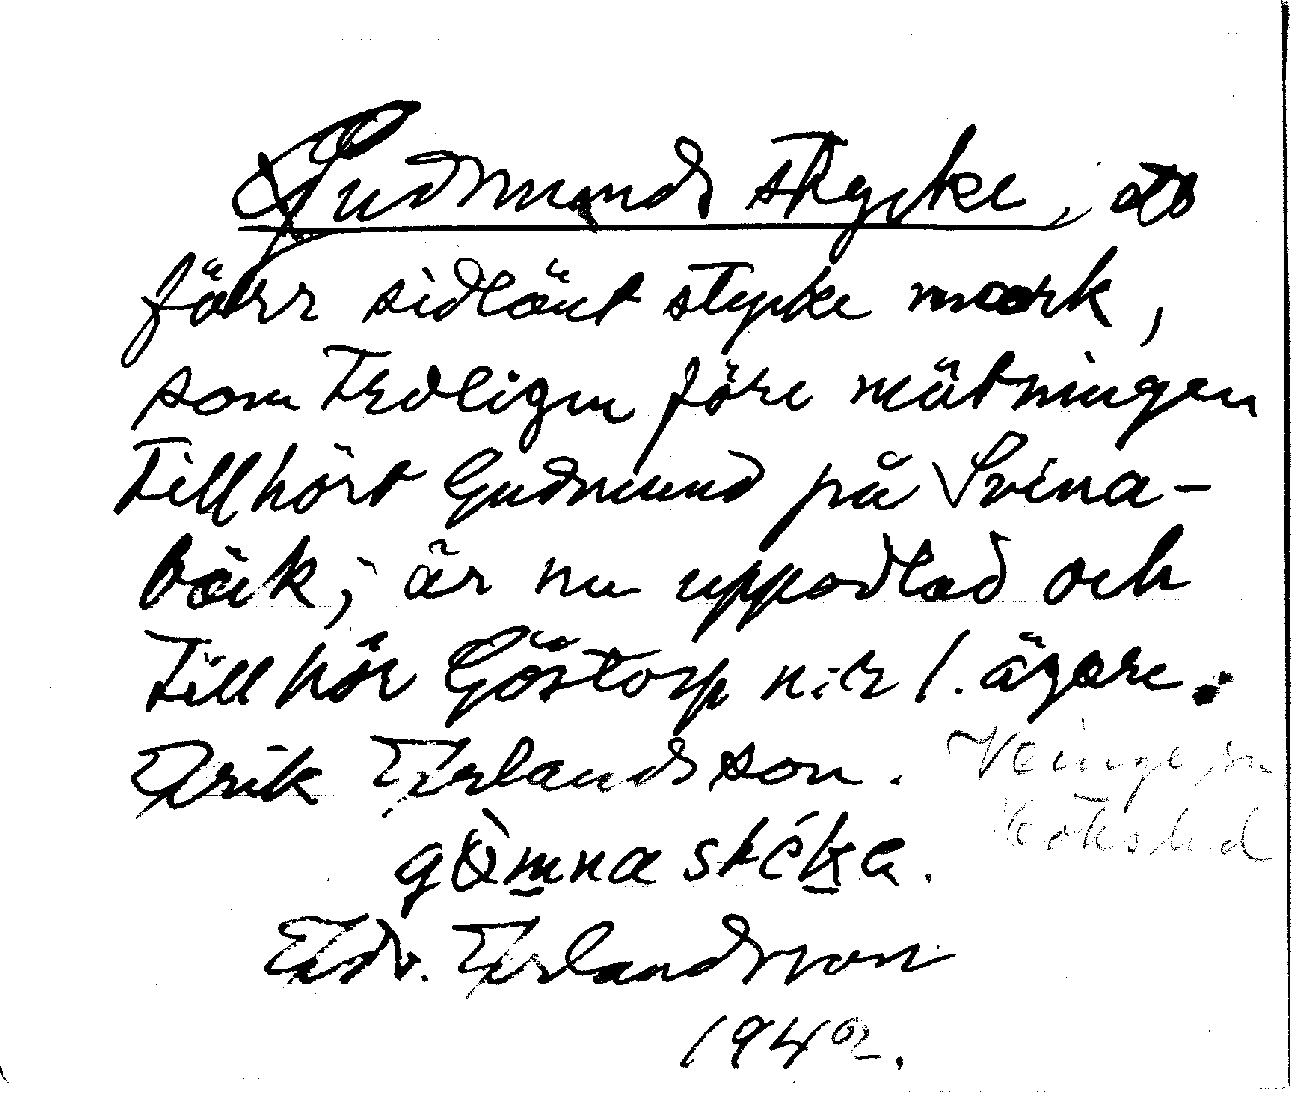 Gudmunds stycke, ett
förr sidlänt stycke mark,
som troligen före mätningen
tillhört Gudmund på Svina-
bäck; är nu uppodlad och
tillhör Göstorp n:r 1. ägare.
Erik Erlandsson. Veinge sn
Hökshd
stéka.
Edv. Erlandsson
1942.